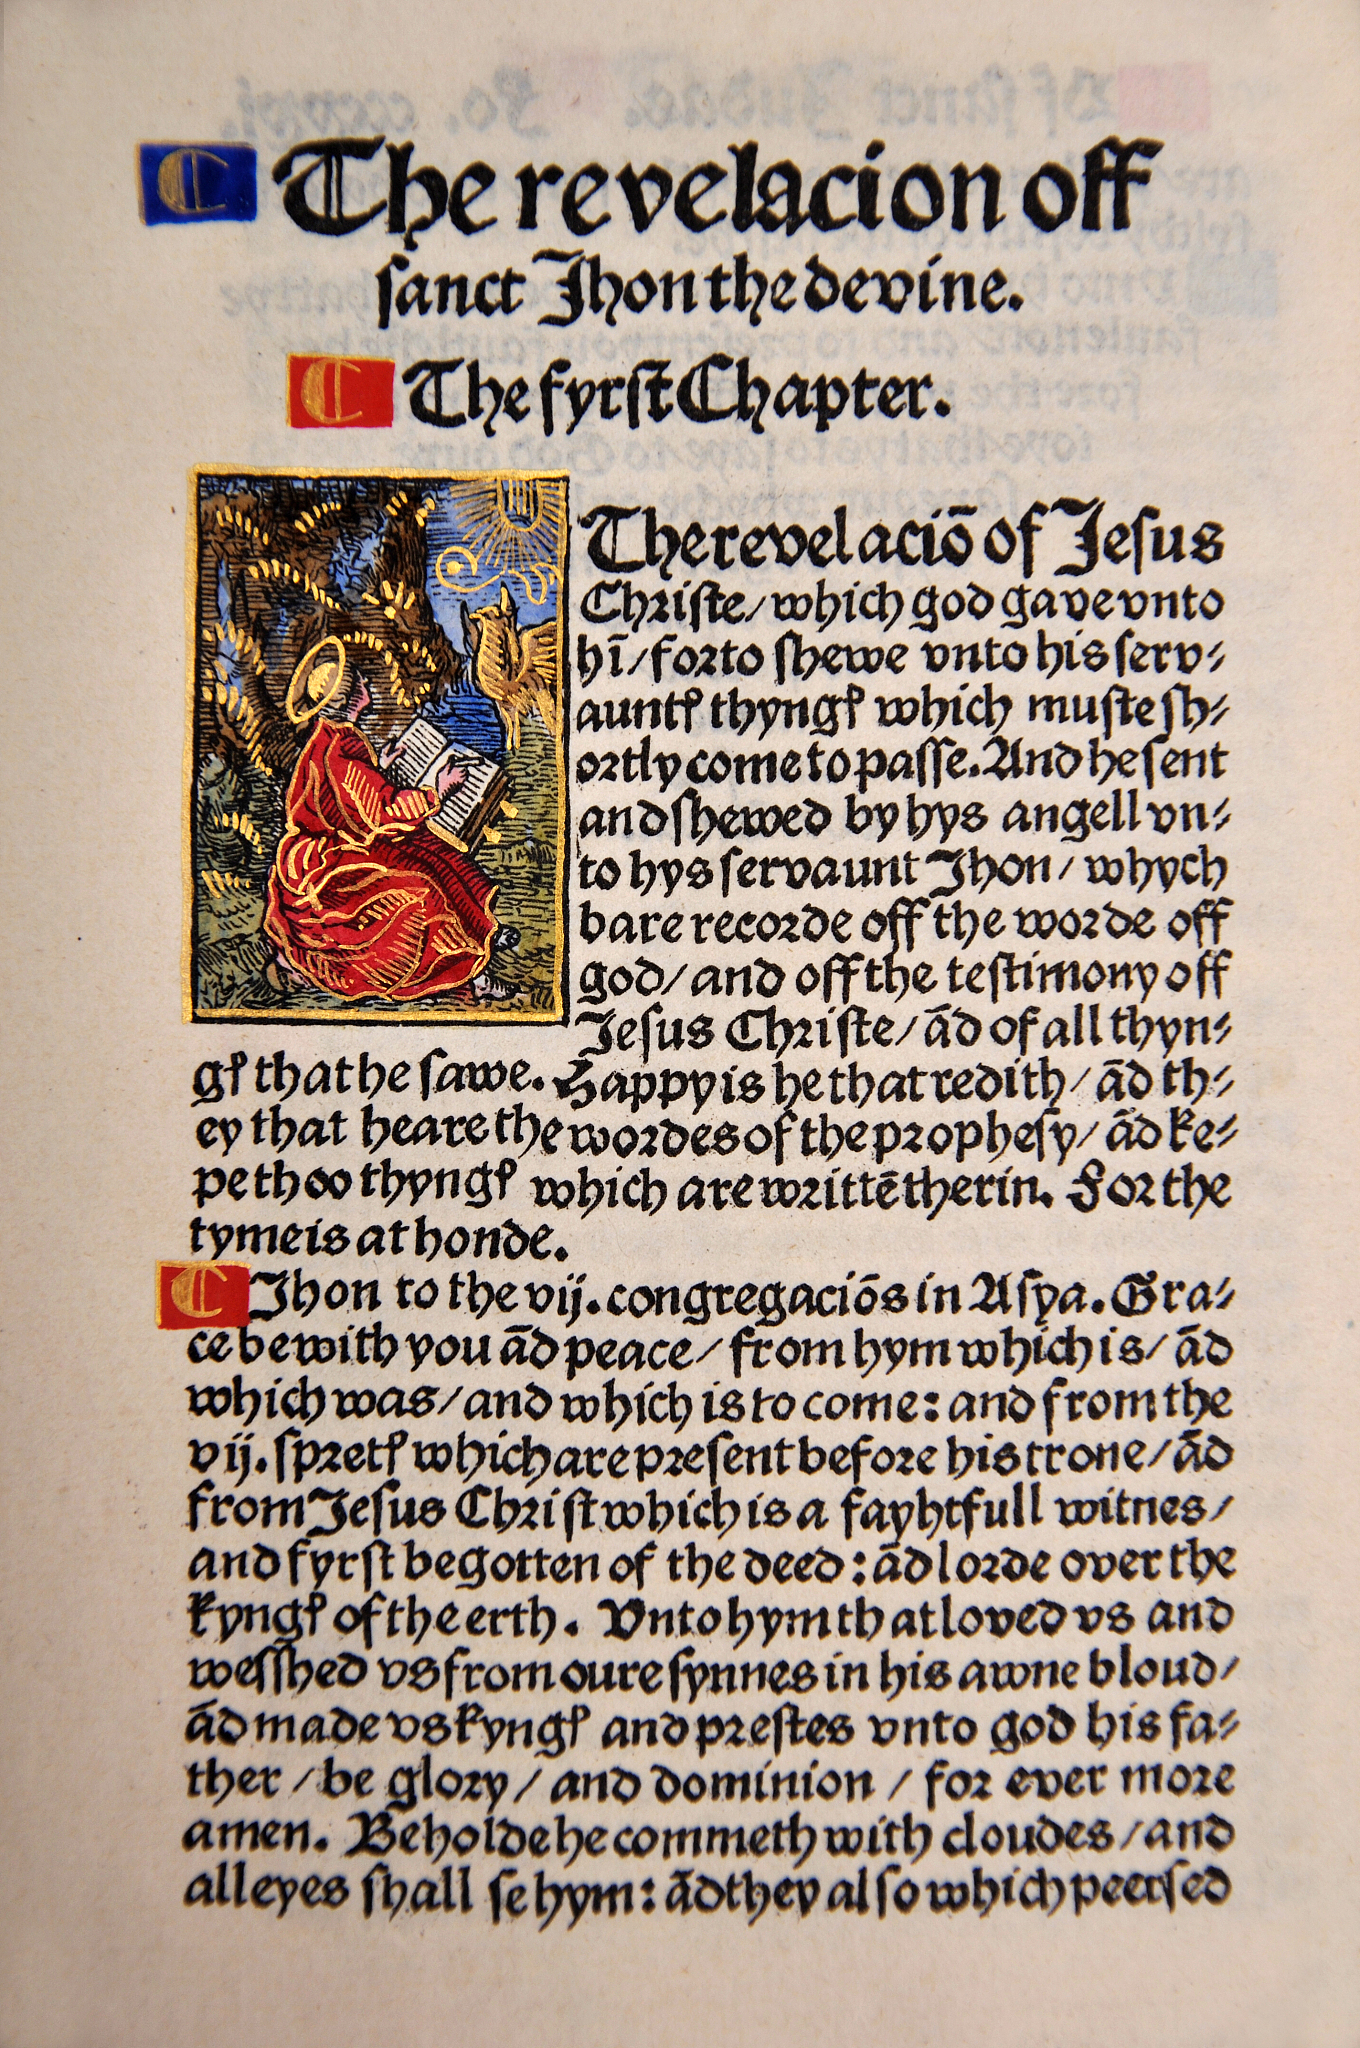 The revelacion off
sanct Jhon the devine.
The fyrst Chapter.
The revelaciō of Jesus
Christe/ which god gave vnto
hī/ for to shewe vnto his serv⸗
auntꝭ thyngꝭ which muste sh⸗
ortly come to passe. And he sent
and shewed by hys angell vn⸗
to hys servaunt Jhon/ whych
bare recorde off the worde off
god/ and off the testimony off
Jesus Christe/ ād of all thyn⸗
gꝭ that he sawe. Happy is he that redith/ ād th⸗
ey that heare the wordes of the prophesy/ ād ke⸗
pe thoo thyngꝭ which are writtē therin. For the
tyme is at honde.
Jhon to the vij. congregaciōs in Asya. Gra⸗
ce be with you ād peace/ from hym which is/ ād
which was/ and which is to come: and from the
vij. spretꝭ which are present before his trone/ ād
from Jesus Christ which is a fayhtfull witnes/
and fyrst begotten of the deed: ād lorde over the
kyngꝭ of the erth. Vnto hym that loved vs and
wesshed vs from oure synnes in his awne bloud/
ād made vs kyngꝭ and prestes vnto god his fa⸗
ther/ be glory/ and dominion/ for ever more
amen. Beholde he commeth with cloudes/ and
all eyes shall se hym: ād they also which peersed